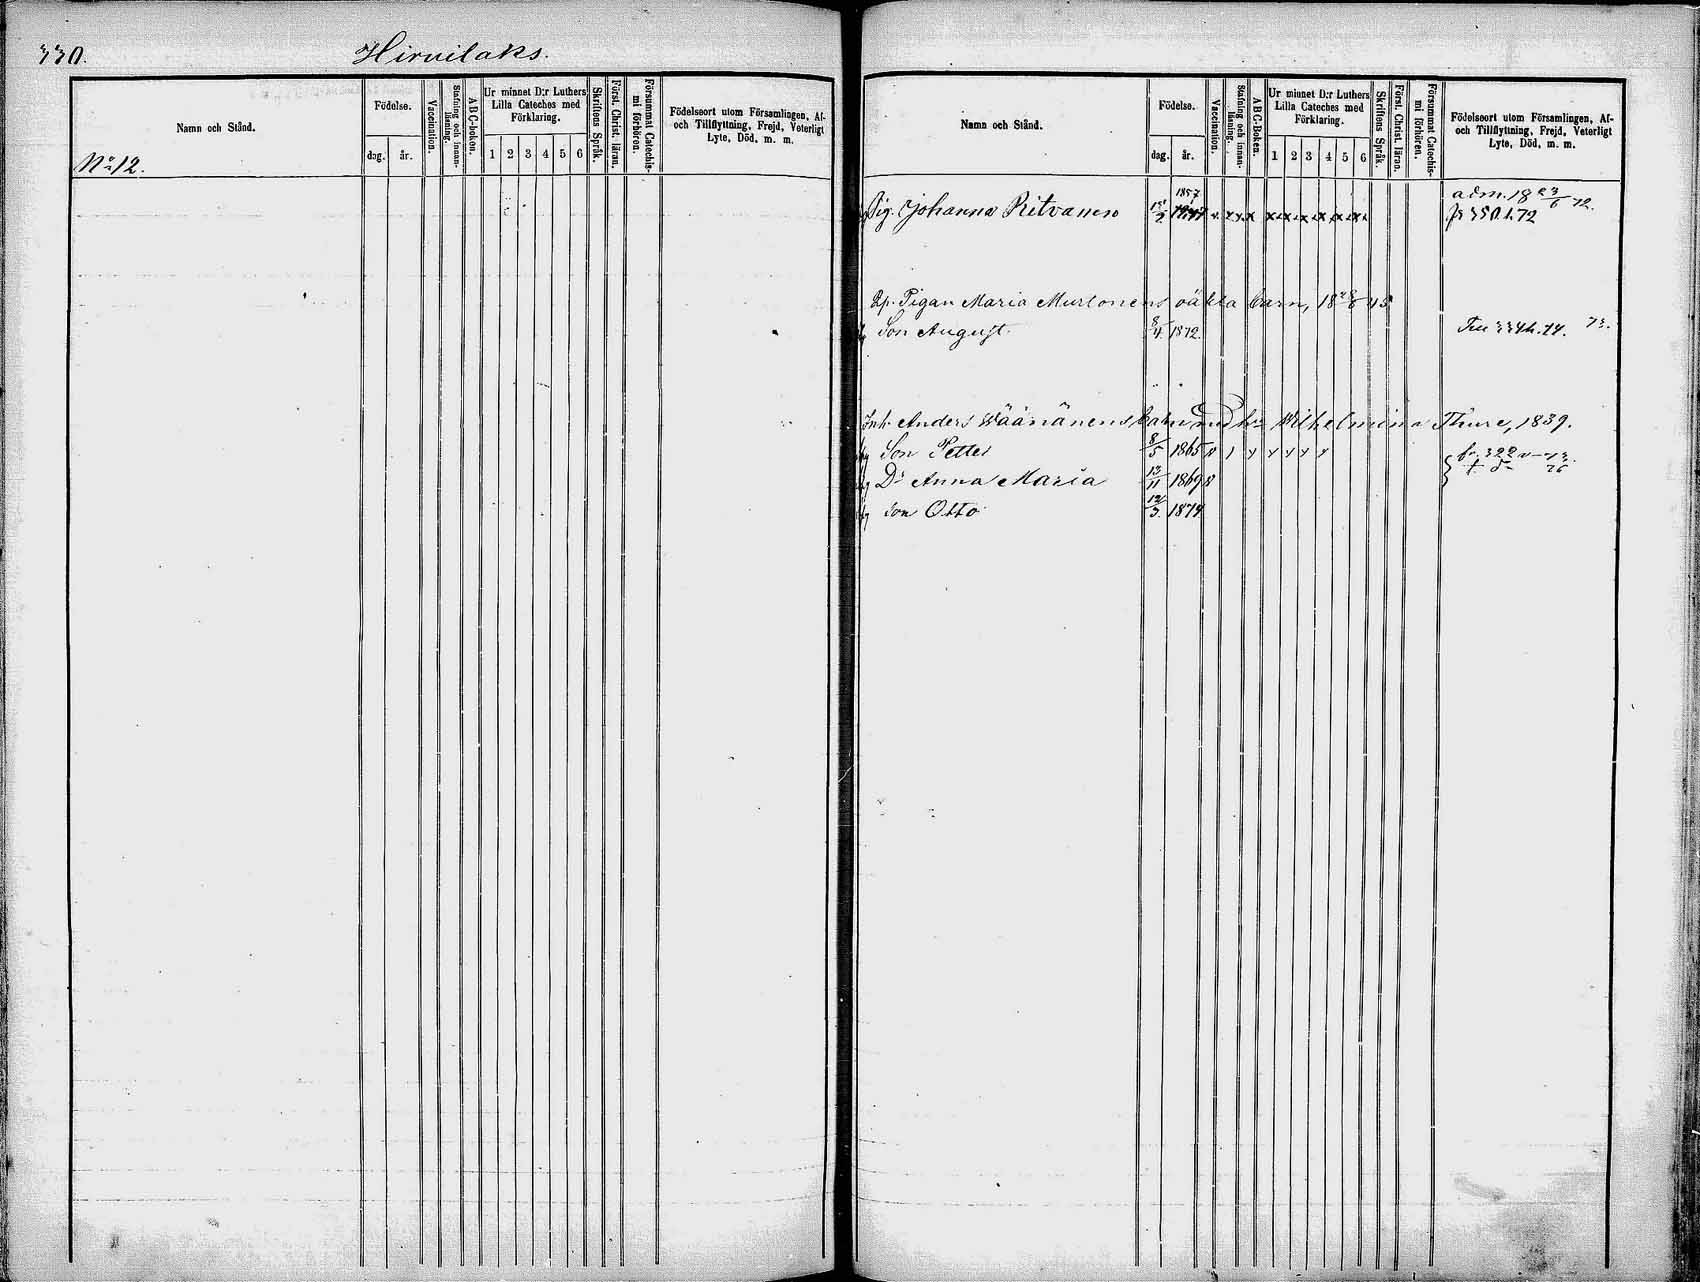 330. Hirvilaks.
Namn och Stånd.
Födelse.
dag. år.
Vaccination.
Stafning och innanläsning.
ABC-boken.
Ur minnet D:r Luthers Lilla Cateches med Förklaring.
1 2 3 4 5 6
Skriftens Språk.
Först. Christ. läran.
Försummat Catechismi förhören.
Födelseort utom Församlingen, Af- och Tillflyttning, Frejd, Veterligt Lyte, Död, m. m.
No 12.
Namn och Stånd.
Födelse.
dag. år.
Vaccination.
Stafning och innanläsning.
ABC-Boken.
Ur minnet D:r Luthers Lilla Cateches med Förklaring.
1 2 3 4 5 6
Skriftens Språk.
Först. Christ. läran.
Försummat Catechismi förhören.
Födelseort utom Församlingen, Af- och Tillflyttning, Frejd, Veterligt Lyte, Död, m. m.
1857 adm. 18 23/6 72.
Pig. Johanna Ritvanen
Pigan Maria Murtonens oäkta barn,
Son August. 8/4. 1872.
Inh. Anders Wäänänens barn med h. Wilhelmina Thure, 1839.
Son Petter 8/5 1865
Dr Anna Maria 13/11 1869
Son Otto 12/3. 1874